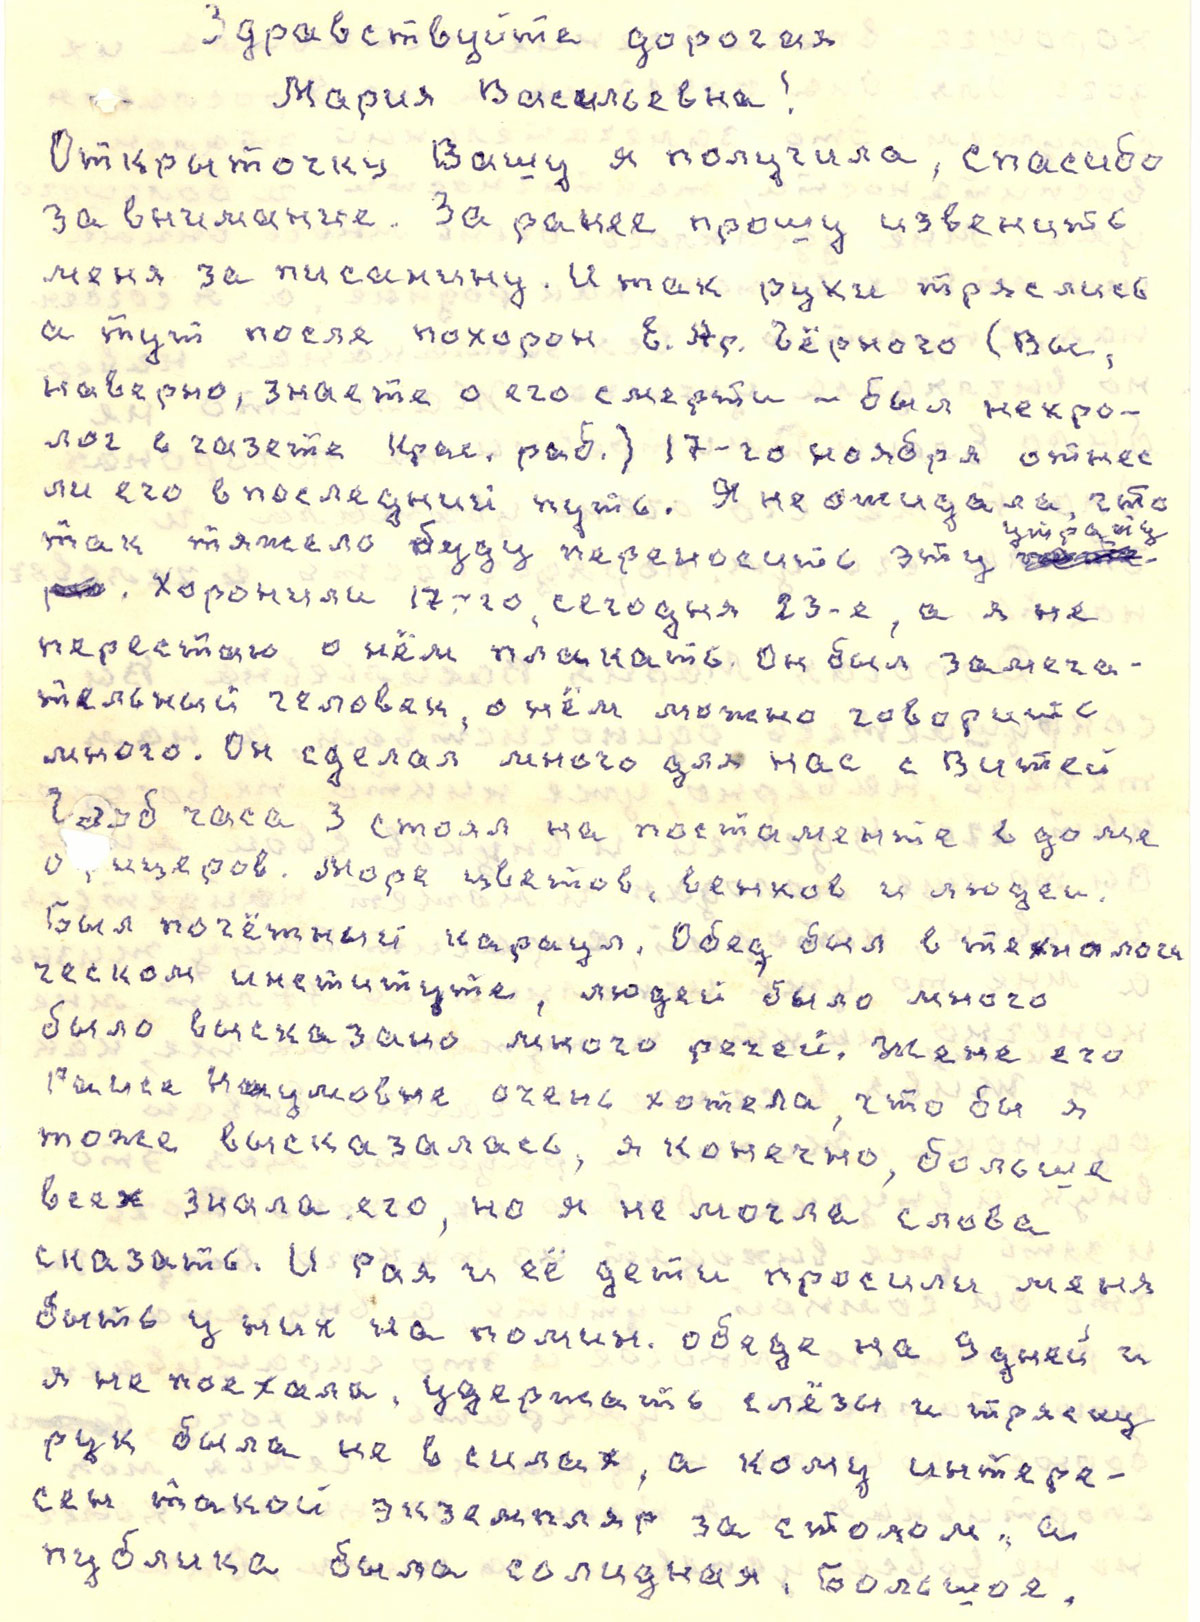 Здравствуйте дорогая
Мария Васильевна!
Открыточку Вашу я получила, спасибо
за внимание. За ранее прошу извенить
меня за писанину. И так руки тряслись
а тут после похорон Е. Яр. Чёрного (Вы,
наверно, знаете о его смерти – был некро-
лог в газете Крас. раб.) 17-го ноября отнес
ли его в последний путь. Я не ожидала, что
так тяжело буду переносить эту утрату
. Хоронили 17-го, сегодня 23-е, а я не
перестаю о нём плакать. Он был замеча-
тельный человек, о нём можно говорить
много. Он сделал много для нас с Витей
Гроб часа 3 стоял на постаменте в доме
офицеров. Море цветов, венков и людей.
Был почётный караул. Обед был в технологи
ческом институте, людей было много
было высказано много речей. Жене его
Раисе Наумовне очень хотела, что бы я
тоже высказалась, я конечно, больше
всех знала его, но я не могла слова
сказать. И Рая и её дети просили меня
быть у них на помин. обеде на 9 дней и
я не поехала, удержать слёзы и тряску
рук была не в силах, а кому интере-
сен такой экземпляр за столом, а
публика была солидная. Большое.